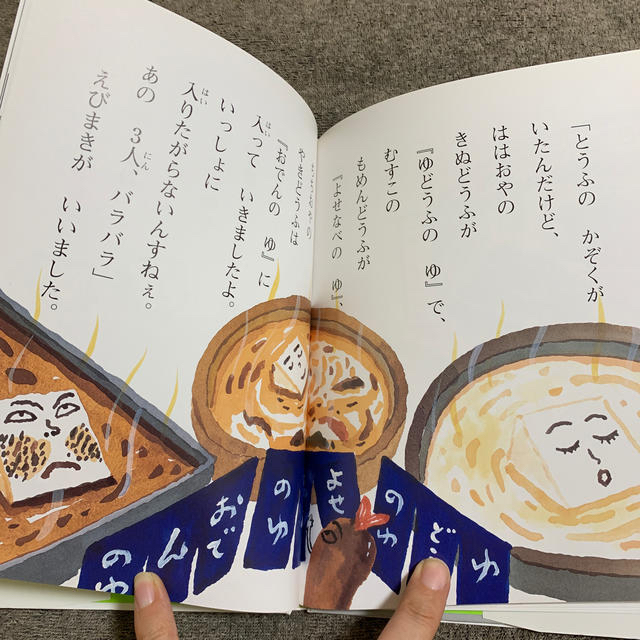 「とうふの　かぞくが
いたんだけど、
ははおやの
きぬどうふが
『ゆどうふの　ゆ』で、
むすこの
もめんどうふが
『よせなべの　ゆ』、
やきどうふは
『おでんの　ゆ』に
入って　いきましたよ。
はい
いっしょに
入りたがらないんすねぇ。
はい
あの　3人、バラバラ」
にん
えびまきが　いいました。
ゆ
ど
のゆ
よせ
のゆ
おで
ん
のゆ